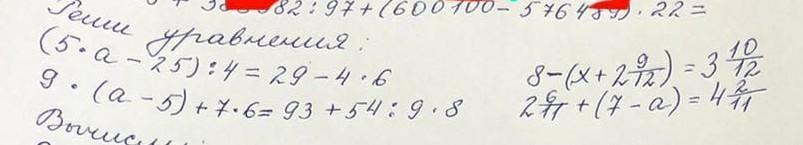 82 : 97 + (600100 - 576489) · 22 =
Реши уравнения:
(5 · a - 25) : 4 = 29 - 4 · 6
8 - (x + 2 9/12) = 3 10/12
9 · (a - 5) + 7 · 6 = 93 + 54 : 9 · 8
2 6/11 + (7 - a) = 4 2/11